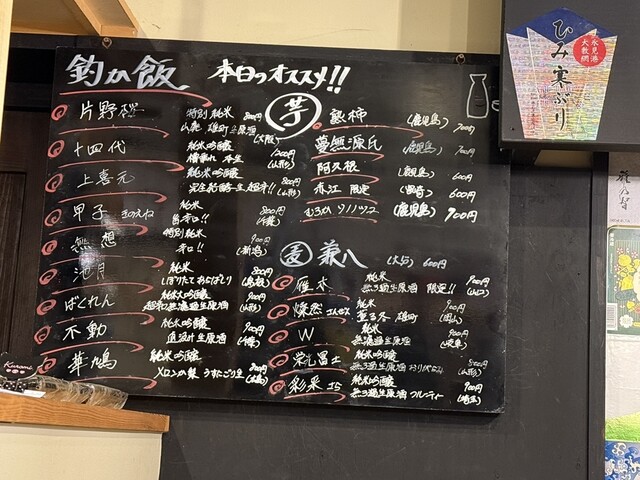 釣り飯 本日のオススメ!!
片野桜 特別純米 800円
山廃 雄町生原酒 (大阪)
十四代 純米吟醸 1200円
槽垂れ 本生 (山形)
上喜元 純米吟醸 800円
完全発酵 生 超辛!! (山形)
甲子 きのえね 純米 800円
旨辛口!! (千葉)
無想 特別純米 900円
辛口!! (新潟)
池月 純米 800円
しぼりたてあらばしり (島根)
ばくれん 純米大吟醸
超辛無濾過生原酒 (山形)
不動 純米吟醸 900円
直汲み生原酒 (千葉)
華鳩 純米吟醸 900円
うすにごり生
芋
熟柿 (鹿児島) 700円
夢無源氏 (鹿児島) 700円
阿久根 (鹿児島) 600円
赤江 限定 (宮崎) 600円
(鹿児島) 900円
麦 兼八 (大分) 600円
雁木 純米 900円
無ろ過生原酒 限定!! (山口)
燦然 さんぜん 純米 900円
雄町 (岡山)
W 純米 900円
無濾過生原酒 (岐阜)
栄光冨士 純米吟醸 800円
無ろ過生原酒 おりがらみ (山形)
彩來 さら 純米吟醸 900円
無ろ過生原酒 フルーティー (埼玉)
氷見港
大敷網
ひみ寒ぶり
Kurome